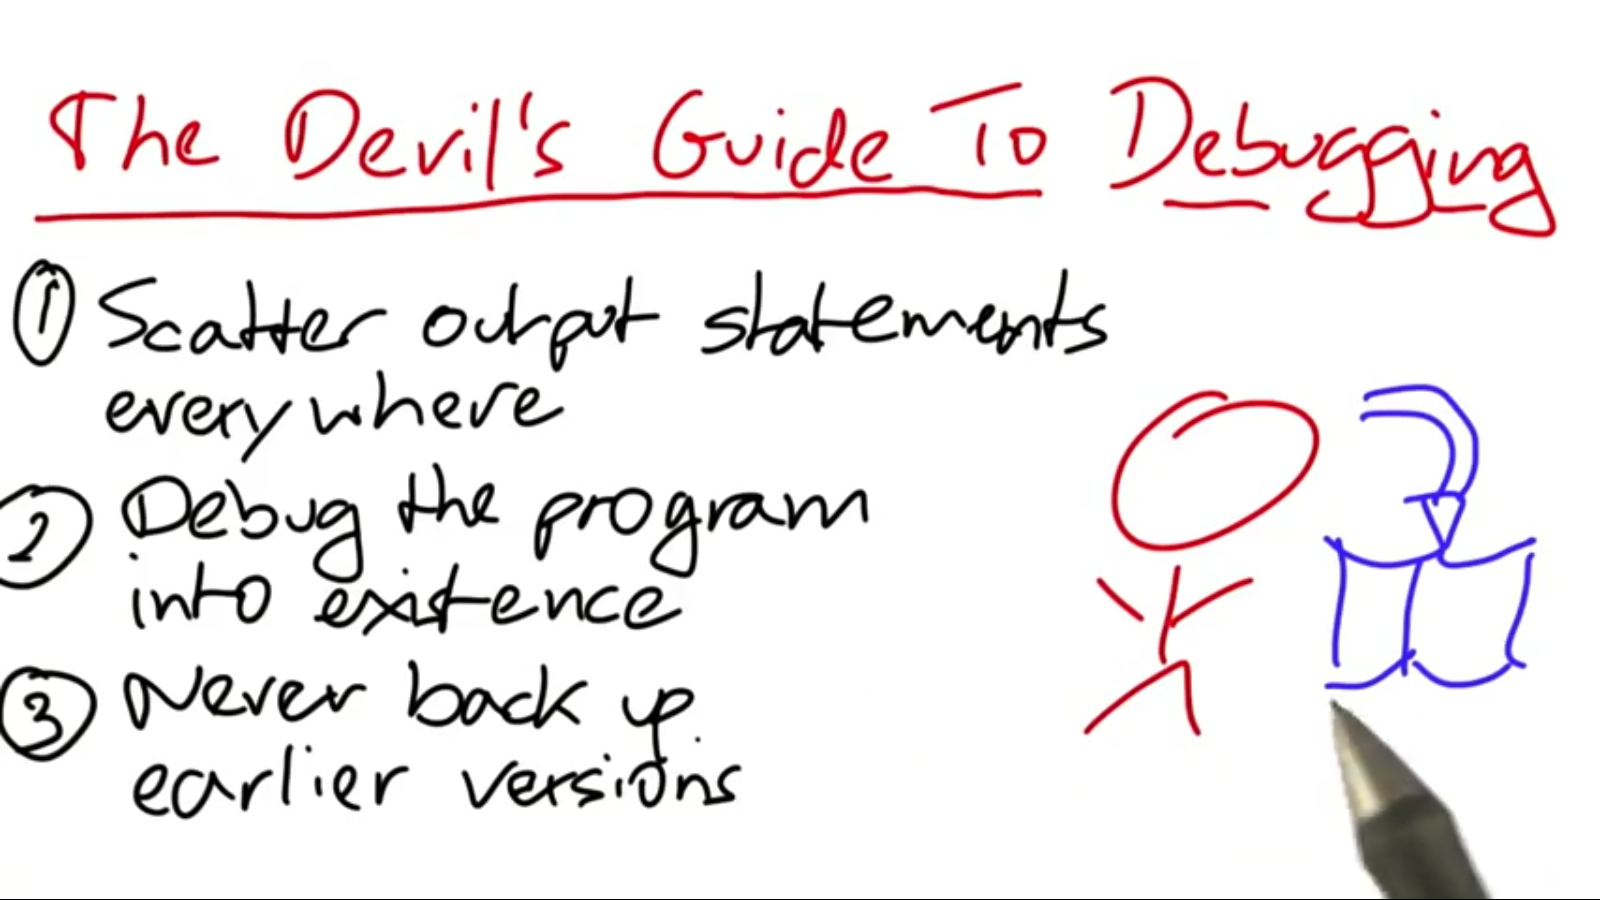 The Devil's Guide To Debugging
1 Scatter output statements
everywhere
2 Debug the program
into existence
3 Never back up
earlier versions